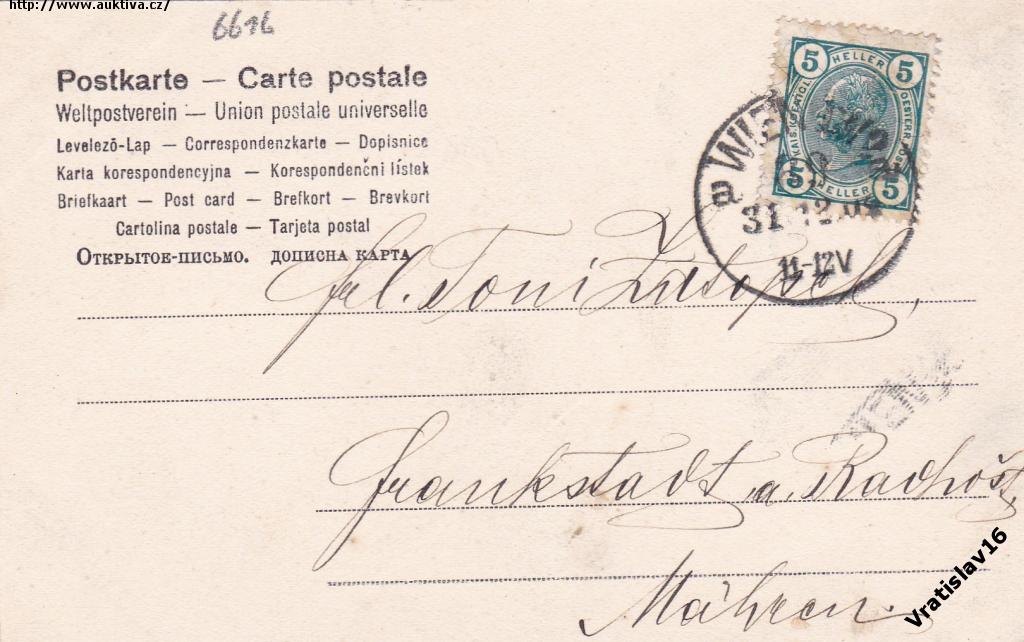 http://www.auktiva.cz/
6616
Postkarte — Carte postale
Weltpostverein — Union postale universelle
Levelező-Lap — Correspondenzkarte — Dopisnice
Karta korespondencyjna — Korespondenčni lístek
Briefkaart — Post card — Brefkort — Brevkort
Cartolina postale — Tarjeta postal
Открытое-письмо. дописна карта
5 HELLER 5
KAIS. KOENIGL. OESTERR. POST
5 HELLER 5
a WIEN
31 12 04
11-12V
Frl. Toni Zátopek,
Frankstadt a. Radhošt
Mähren.
Vratislav16